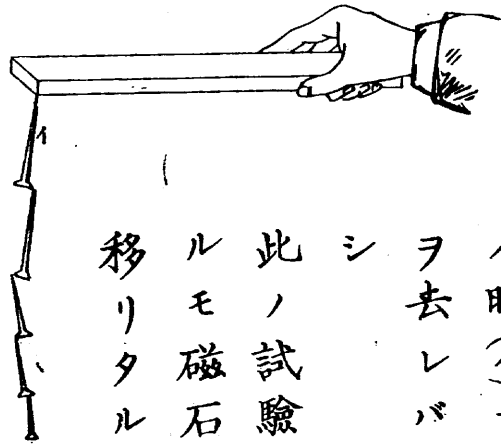 ヲ去レバ
シ
此ノ試驗
ルモ磁石
移リタル
イ